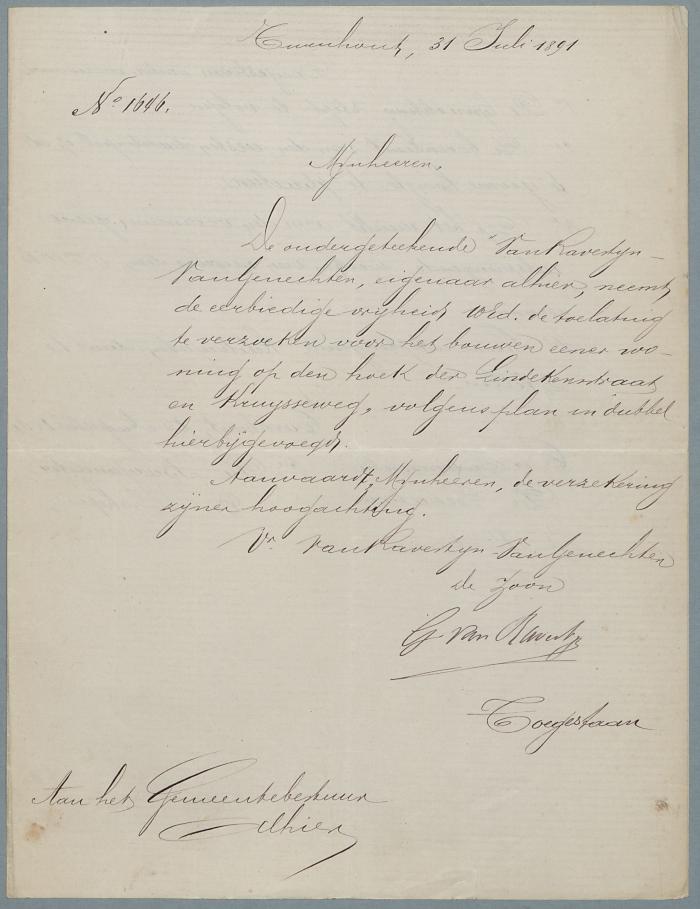 Turnhout, 31 Juli 1891
No 1646.
Mynheeren,
De ondergeteekende Van Ravestyn-
Van Genechten, eigenaar alhier, neemt
de eerbiedige vryheid UEd. de toelating
te verzoeken voor het bouwen eener wo-
ning op den hoek der Lindekensstraat
en Kruysseweg, volgens plan in dubbel
hierbijgevoegd.
Aanvaardt, Mynheeren, de verzekering
zyner hoogachting.
Vr. Van Ravestyn-Van Genechten
de zoon
G Van Ravestyn
Toegestaan
Aan het Gemeentebestuur
Alhier